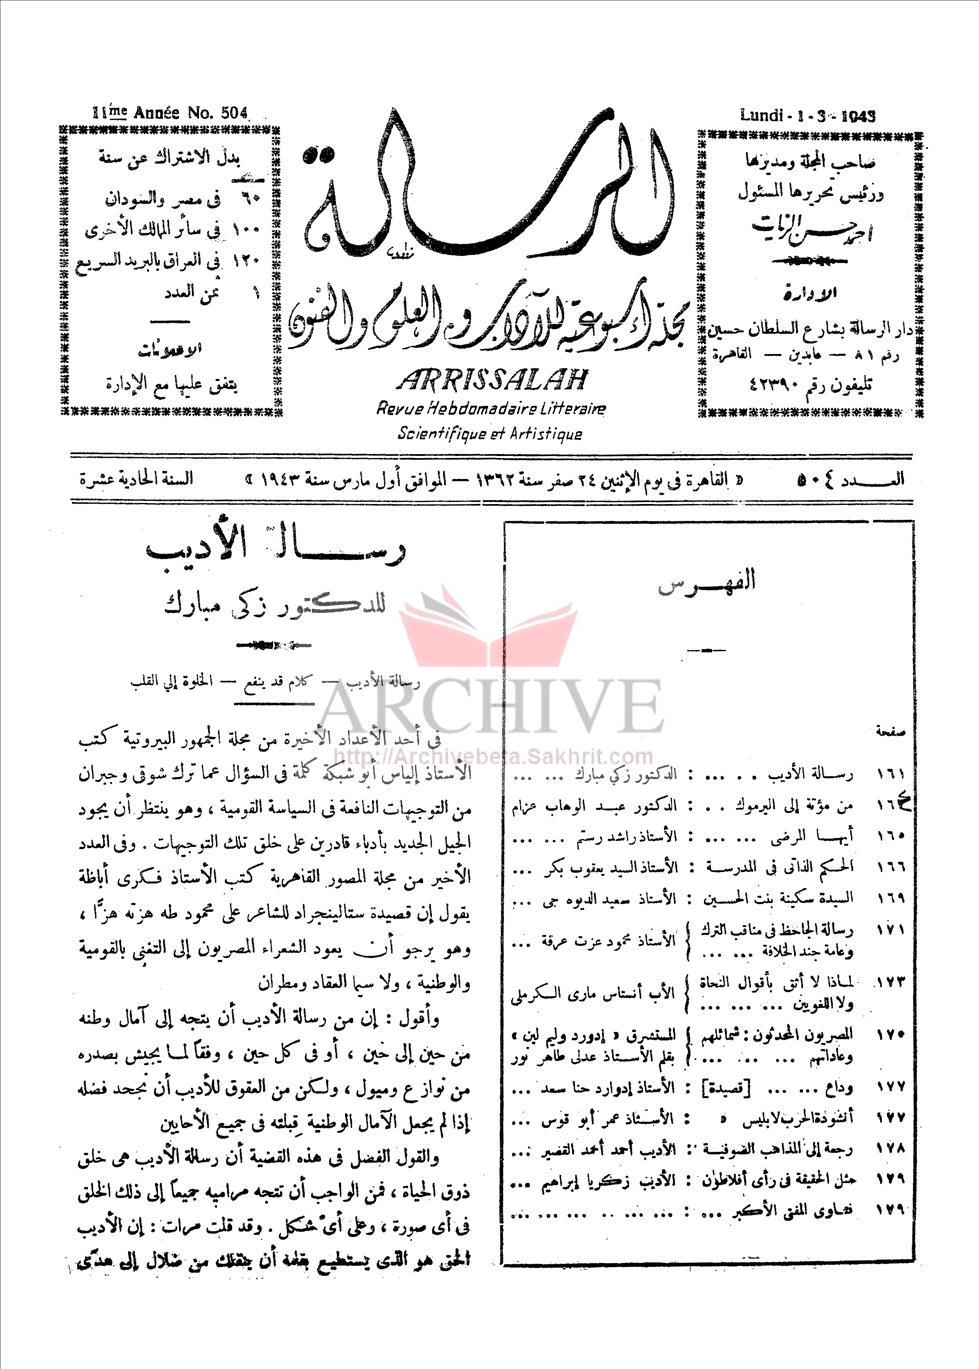 11me Année No. 504
بدل الاشتراك عن سنة
٦٠ فى مصر والسودان
١٠٠ فى سائر الممالك الأخرى
١٢٠ فى العراق بالبريد السريع
١ ثمن العدد
الاعلانات
يتفق عليها مع الإدارة
الرسالة
مجلة أسبوعية للآداب والعلوم والفنون
ARRISSALAH
Revue Hebdomadaire Litteraire
Scientifique et Artistique
Lundi - 1 - 3 - 1943
صاحب المجلة ومديرها
ورئيس تحريرها المسئول
احمد حسن الزيات
الادارة
دار الرسالة بشارع السلطان حسين
رقم ٨١ — عابدين — القاهرة
تليفون رقم ٤٢٣٩٠
العـــدد ٥٠٤ « القاهرة فى يوم الإثنين ٢٤ صفر سنة ١٣٦٢ — الموافق أول مارس سنة ١٩٤٣ » السنة الحادية عشرة
الفهـرس
صفحة
١٦١ رسـالة الأديب . . ... : الدكتور زكي مبارك ... ...
١٦٣ من مؤتة إلى اليرموك . . : الدكتور عبـد الوهاب عزام
١٦٥ أيهـا المرضى ... ... : الأستاذ راشد رستم ... ...
١٦٦ الحـكم الذاتى فى المدرسـة : الأستاذ السيد يعقوب بكر ...
١٦٩ السيدة سكينة بنت الحسين : الأستاذ سعيد الديوه جى ...
١٧١ رسالة الجاحظ فى مناقب الترك
وعامة جند الخلافة ... ... } الأستاذ محمود عزت عرفة ...
١٧٣ لمـاذا لا أثق بأقوال النحاة
ولا اللغويين ... ... ... } الأب أنستاس مارى الكرملى
١٧٥ المصريون المحدثون : شمائلهم
وعاداتهم ... ... ... } للمستشرق « إدورد وليم لين »
بقلم الأسـتاذ عدلى طاهر نور
١٧٧ وداع ... ... [قصيدة] : الأستاذ إدوارد حنا سعد ...
١٧٧ أنشودة الحرب لابليس » : الأسـتاذ عمر أبو قوس ...
١٧٨ رجعة إلى المذاهب الصوفيـة : الأديب أحمد أحمد القصير ...
١٧٩ مثل الحقيقة فى رأى أفلاطون : الأديب زكريا إبراهيم ...
١٧٩ فتاوى المفتى الأكبر ... : ... ... ... ... ...
رســـالة الأديب
للدكتور زكى مبارك
رسالة الأديب — كلام قد ينفع — الخلوة إلى القلب
فى أحد الأعداد الأخيرة من مجلة الجمهور البيروتية كتب
الأستاذ إلياس أبو شبكة كلمة فى السؤال عما ترك شوقى وجبران
من التوجيهات النافعة فى السياسة القومية ، وهو ينتظر أن يجود
الجيل الجديد بأدباء قادرين على خلق تلك التوجيهات . وفى العدد
الأخير من مجلة المصور القاهرية كتب الأستاذ فـكرى أباظة
يقول إن قصيدة ستالينجراد للشاعر على محمود طه هزته هزًّا ،
وهو يرجو أن يعود الشعراء المصريون إلى التغنى بالقومية
والوطنية ، ولا سيما العقاد ومطران
وأقول : إن من رسالة الأديب أن يتجه إلى آمال وطنه
من حين إلى حين ، أو فى كل حين ، وفقاً لمـا يجيش بصدره
من نوازع وميول ، ولـكن من العقوق للأديب أن نجحد فضله
إذا لم يجعل الآمال الوطنية قِبلته فى جميع الأحايين
والقول الفصل فى هذه القضية أن رسالة الأديب هى خلق
ذوق الحياة ، فمن الواجب أن تتجه مراميه جميعاً إلى ذلك الخلق
فى أى صورة ، وعلى أى شـكل . وقد قلت مرات : إن الأديب
الحق هو الذى يستطيع بقلمه أن ينقلك من ضلال إلى هدى
ARCHIVE
http://Archivebeta.Sakhrit.com